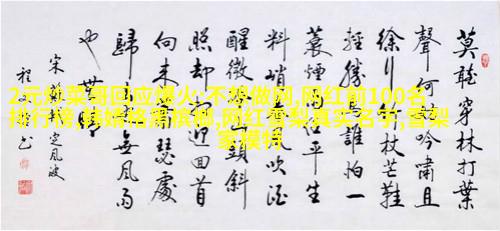 2元炒菜哥回应爆火:不想做网,网红前100名
排行榜,韩婧格演槟榔,网红香梨真实名字,雪梨
家模特
莫聽穿林打葉
聲何妨吟嘯且
徐行竹杖芒鞋
輕勝馬誰怕一
蓑煙雨任平生
料峭春風吹酒
醒微冷山頭斜
照却相迎回首
向来蕭瑟處
歸去也無風雨
也無晴
宋蘇軾定風波